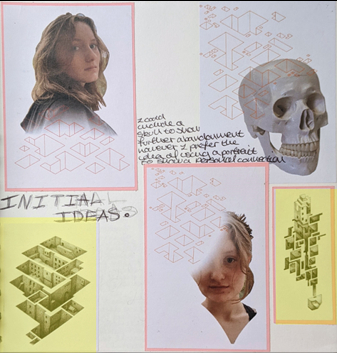 I could
include a
skull to show
further abandonment
however I prefer the
idea of using a portrait
to show a personal connection
INITIAL
IDEAS.